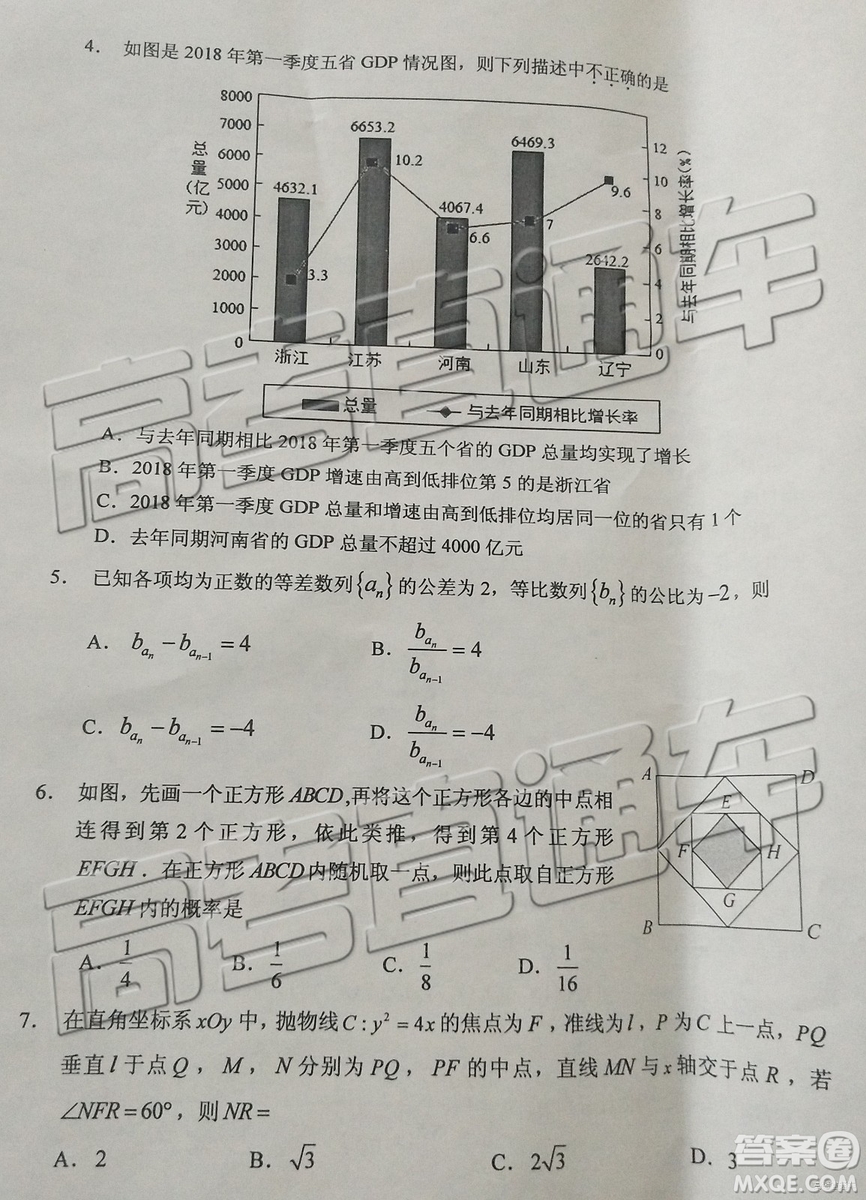 4. 如图是 2018 年第一季度五省 GDP 情况图，则下列描述中不正确的是
总量(亿元)
8000
7000
6000
5000
4000
3000
2000
1000
0
4632.1
6653.2
4067.4
6469.3
2642.2
3.3
10.2
6.6
7
9.6
12
10
8
6
4
2
0
与去年同期相比增长率(%)
浙江 江苏 河南 山东 辽宁
总量 与去年同期相比增长率
A. 与去年同期相比 2018 年第一季度五个省的 GDP 总量均实现了增长
B. 2018 年第一季度 GDP 增速由高到低排位第 5 的是浙江省
C. 2018 年第一季度 GDP 总量和增速由高到低排位均居同一位的省只有 1 个
D. 去年同期河南省的 GDP 总量不超过 4000 亿元
5. 已知各项均为正数的等差数列{a_n}的公差为 2，等比数列{b_n}的公比为 −2，则
A. b_{a_n} − b_{a_{n-1}} = 4 B. b_{a_n} / b_{a_{n-1}} = 4
C. b_{a_n} − b_{a_{n-1}} = −4 D. b_{a_n} / b_{a_{n-1}} = −4
6. 如图，先画一个正方形 ABCD,再将这个正方形各边的中点相
连得到第 2 个正方形，依此类推，得到第 4 个正方形
EFGH．在正方形 ABCD 内随机取一点，则此点取自正方形
EFGH 内的概率是
A D
E
F H
G
B C
A. 1/4 B. 1/6 C. 1/8 D. 1/16
7. 在直角坐标系 xOy 中，抛物线 C : y² = 4x 的焦点为 F，准线为 l，P 为 C 上一点，PQ
垂直 l 于点 Q，M，N 分别为 PQ，PF 的中点，直线 MN 与 x 轴交于点 R，若
∠NFR = 60°，则 NR =
A. 2 B. √3 C. 2√3 D. 3
高考直通车
高考直通车
答案圈
MXQE.COM